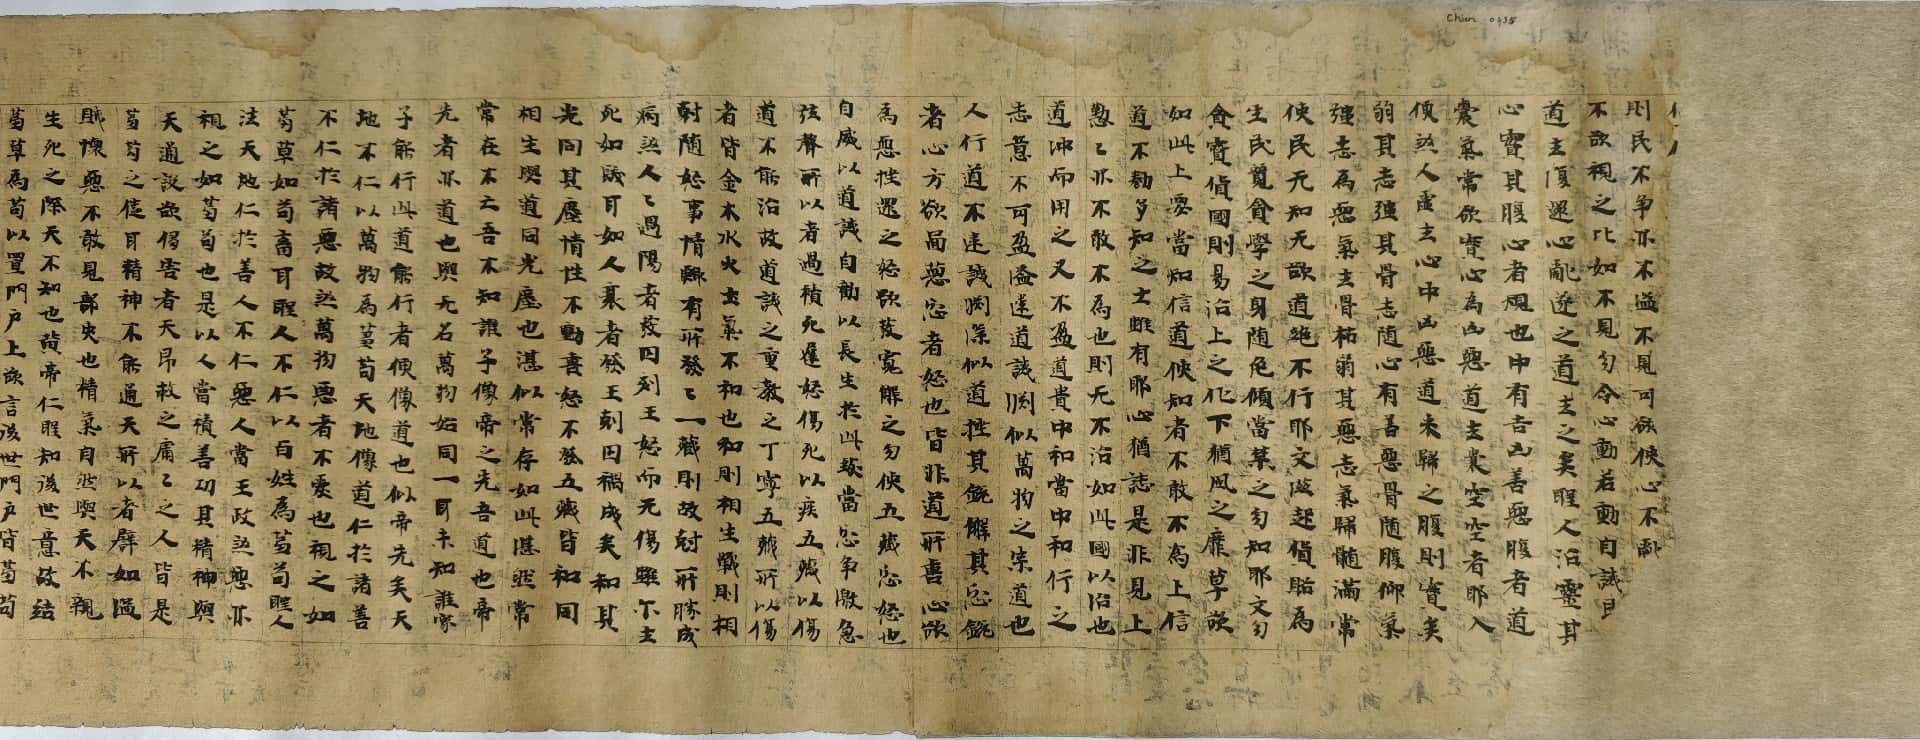 則民不爭亦不盜不見可欲使心不亂
不欲視之比如不見勿令心動若動自誡即
道去復還心亂遂之道去之矣聖人治靈其
心實其腹心者規也中有吉凶善惡腹者道
囊氣常欲實心為凶惡道去囊空空者耶入
便煞人虛去心中凶惡道來歸之腹則實矣
弱其志強其骨志隨心有善惡骨隨腹仰氣
強志為惡氣去骨枯弱其惡志氣歸髓滿常
使民无知无欲道絕不行耶文滋起貨賂為
生民竟貪學之身隨危傾當禁之勿知耶文勿
貪寶貨國則易治上之化下猶風之靡草欲
如此上要當知信道使知者不敢不為上信
道不勌多知之士雖有耶心猶誌是非見上
懃〻亦不敢不為也則无不治如此國以治也
道沖而用之又不盈道貴中和當中和行之
志意不可盈溢違道誡淵似萬物之宗道也
人行道不違誡淵深似道挫其銳解其忿銳
者心方欲啚惡忿者怒也皆非道所喜心欲
為惡挫還之怒欲發寬解之勿使五藏忿怒也
自威以道誡自勸以長生於此致當忿爭激急
弦聲所以者過積死遲怒傷死以疾五藏以傷
道不能治故道誡之重教之丁寧五藏所以傷
者皆金木水火土氣不和也和則相生戰則相
尅隨怒事情輒有所發〻一藏則故尅所勝成
病煞人〻過陽者發囚刻王怒而无傷雖尒去
死如髮耳如人衰者發王尅囚禍成矣和其
光同其塵情性不動喜怒不發五藏皆和同
相生與道同光塵也湛似常存如此湛然常
常在不亡吾不知誰子像帝之先吾道也帝
先者亦道也與无名萬物始同一耳未知誰家
子能行此道能行者便像道也似帝先矣天
地不仁以萬物為芻苟天地像道仁於諸善
不仁於諸惡故煞萬物惡者不愛也視之如
芻草如苟畜耳聖人不仁以百姓為芻苟聖人
法天地仁於善人不仁惡人當王政煞惡亦
視之如芻苟也是以人當積善功其精神與
天通設欲侵害者天即救之庸〻之人皆是
芻苟之徒耳精神不能通天所以者譬如盜
賊懷惡不敢見部史也精氣自然與天不親
生死之際天不知也黃帝仁聖知後世意故結
芻草為苟以置門戶上欲言後世門戶皆芻苟